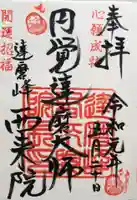 奉拝
心願成就
円覚達磨大師
令和元年
五月二十日
開運招福
達磨峰
西来院